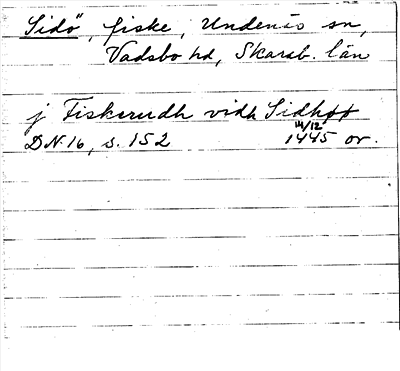 Sidö, fiske, Undenäs sn,
Vadsbo hd, Skarab. län
j Fiskerudh vidh Sidhøø
14/12
DN 16, s. 152 1445 or.